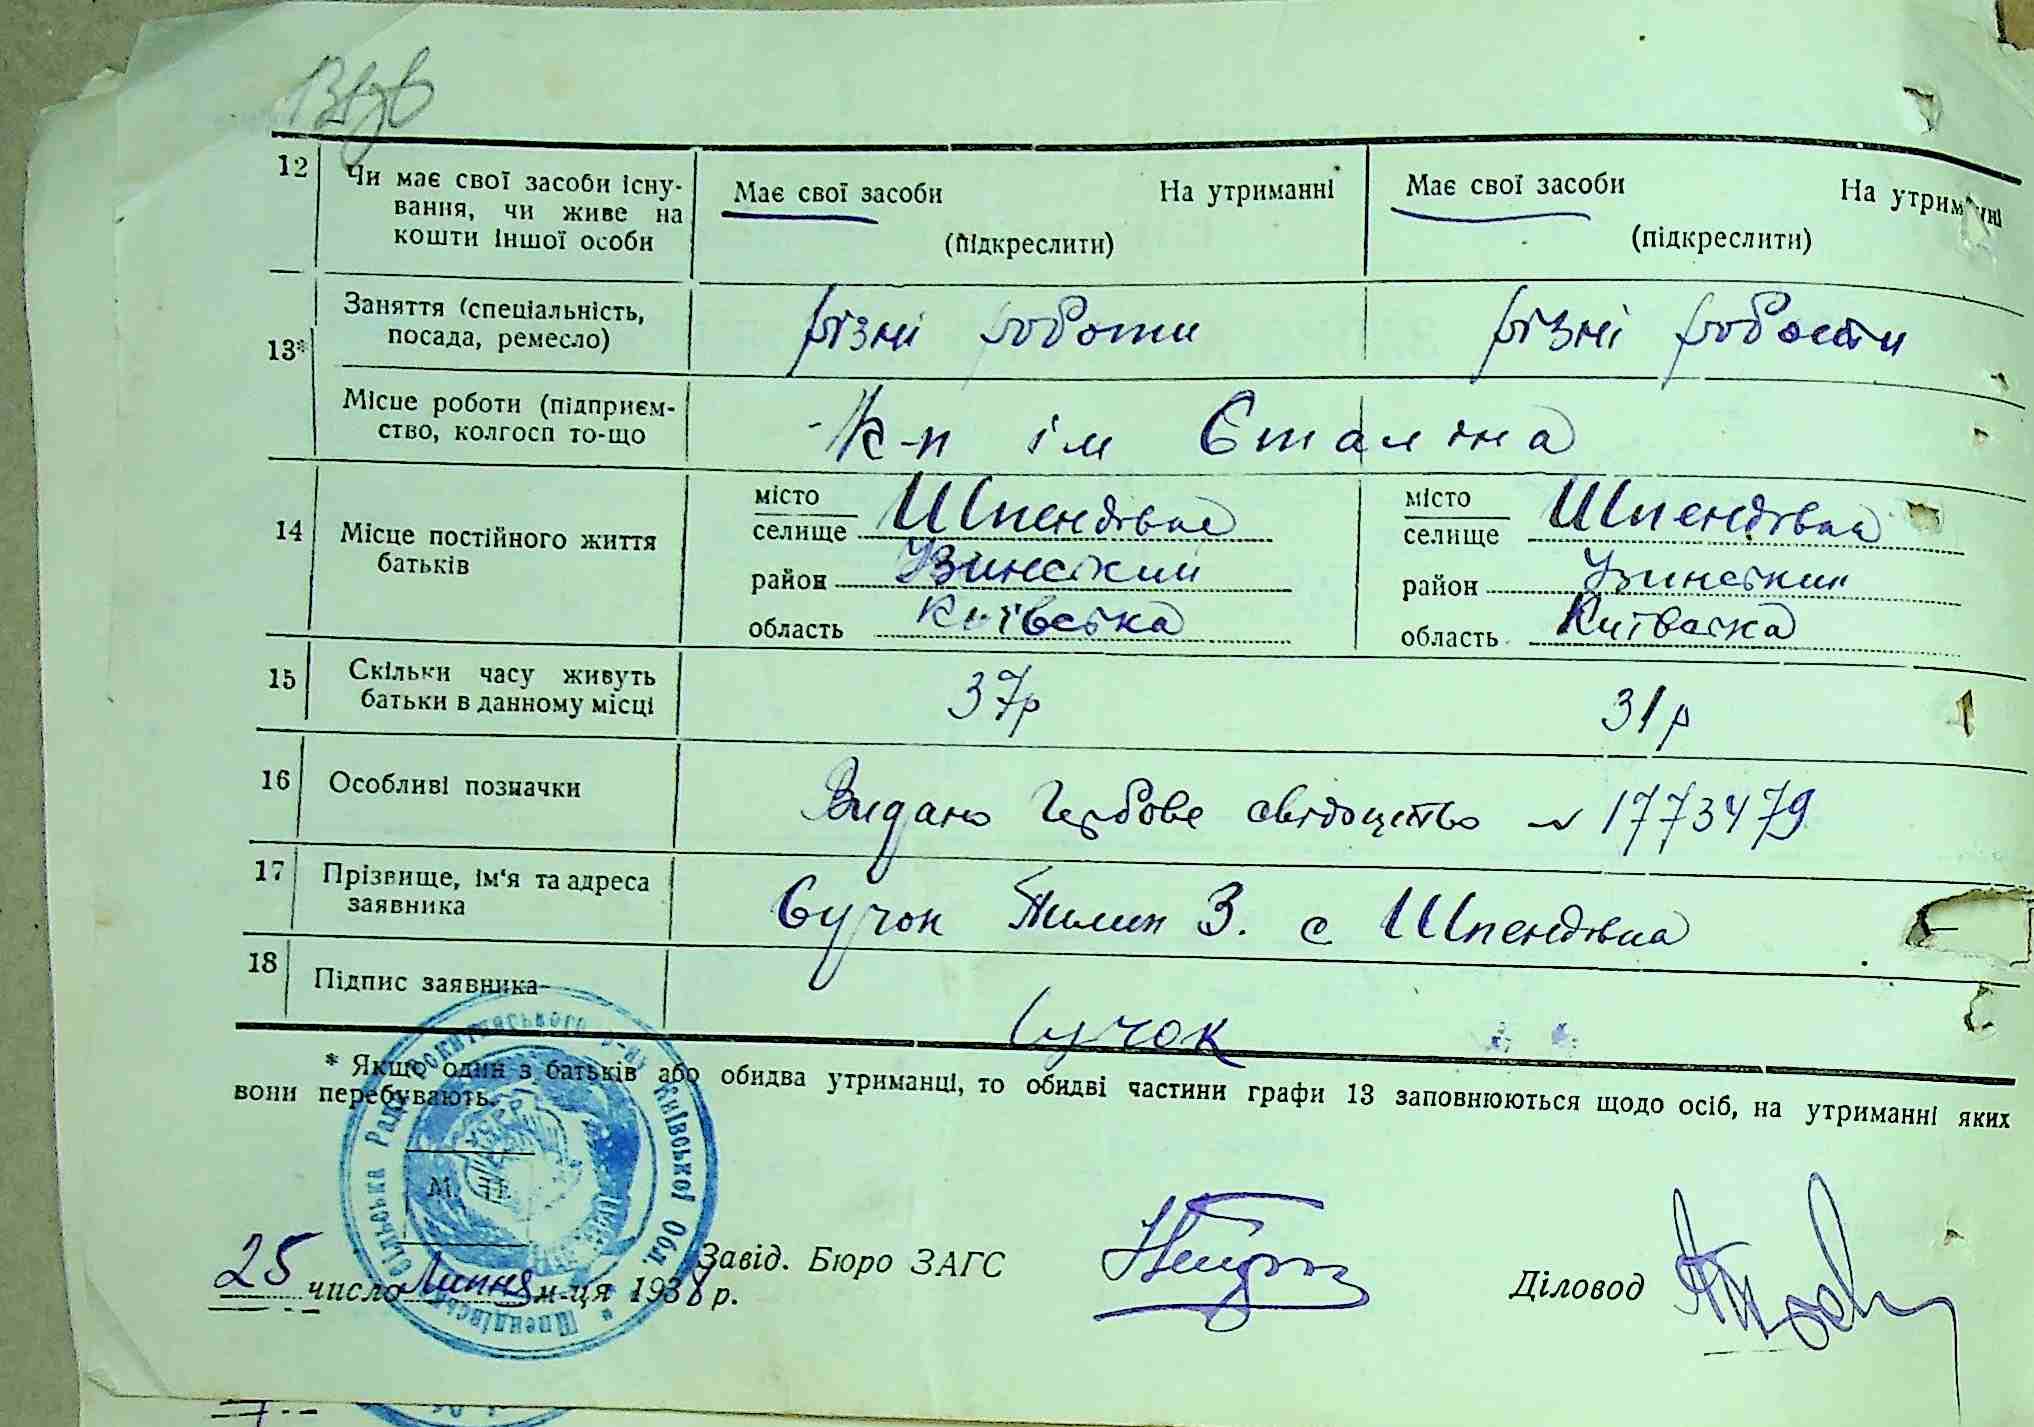 12
Чи має свої засоби існу-
вання, чи живе на
кошти іншої особи
Має свої засоби На утриманні
(підкреслити)
Має свої засоби На утриманні
(підкреслити)
13*
Заняття (спеціальність,
посада, ремесло)
різні роботи
різні роботи
Місце роботи (підприєм-
ство, колгосп то-що
К-п ім Сталіна
14
Місце постійного життя
батьків
місто
селище Шпендівка
район Узинський
область Київська
місто
селище Шпендівка
район Узинський
область Київська
15
Скільки часу живуть
батьки в данному місці
37р
31р
16
Особливі позначки
Видано Гербове свідоцтво № 1773479
17
Прізвище, ім'я та адреса
заявника
Сучок З. с Шпендівка
18
Підпис заявника
Сучок
* Якщо один з батьків або обидва утриманці, то обидві частини графи 13 заповнюються щодо осіб, на утриманні яких
вони перебувають.
М. П.
Київської Обл.
Завід. Бюро ЗАГС
Діловод
25 число Липня м-ця 1938 р.